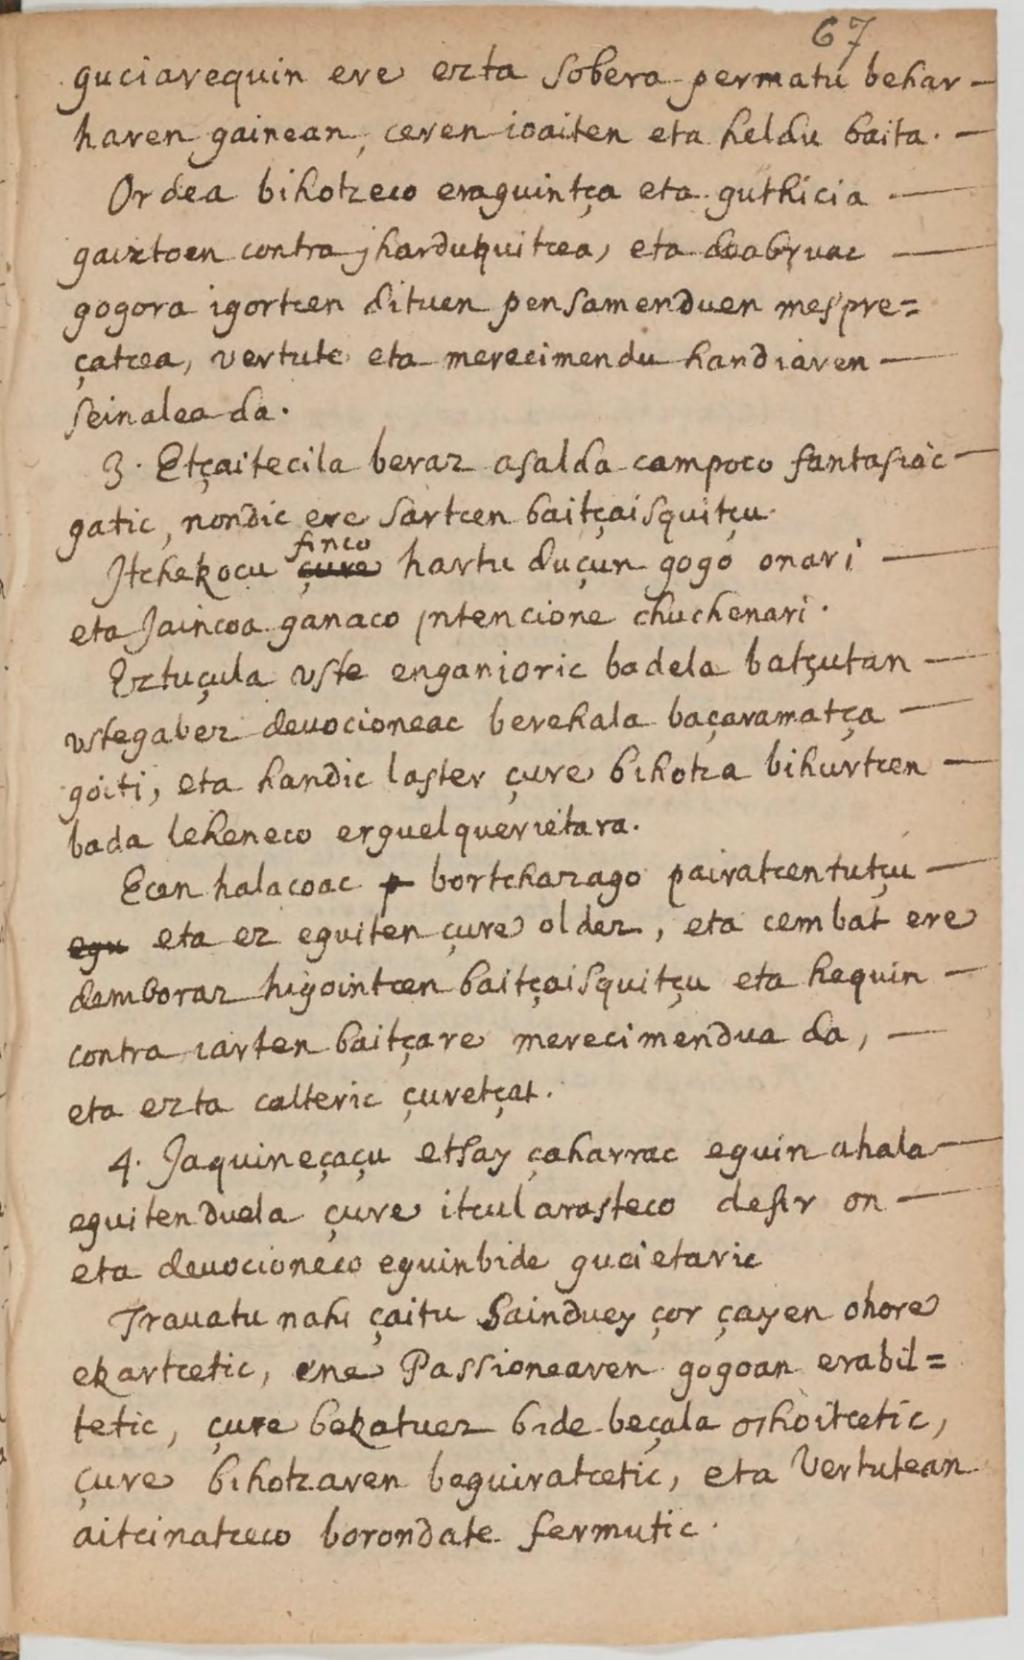 67
guciarequin ere ezta sobera permatu behar
haren gainean, ceren ioaiten eta heldu baita.
Ordea bihotzeco eraguintça eta guthicia
gaiztoen contra jharduquitcea, eta deabruac
gogora igortcen dituen pensamenduen mespre=
çatcea, vertute eta merecimendu handiaren
seinalea da.
3. Etçaitecila beraz asalda campoco fantasiac
gatic, nondic ere sartcen baitçaisquitçu.
finco
Itchekocu çure hartu duçun gogo onari
eta Jaincoa ganaco intencione chuchenari.
Eztuçula uste enganioric badela batçutan
ustegabez deuocioneac berehala baçaramatça
goiti, eta handic laster çure bihotza bihurtcen
bada leheneco erguelquerietara.
Ecen halacoac p bortchazago pairatcentutçu
egu eta ez eguiten çure oldez, eta cembat ere
demboraz higointcen baitçaisquitçu eta hequin
contra iarten baitçare merecimendua da,
eta ezta calteric çuretçat.
4. Jaquineçaçu etsay çaharrac eguin ahala
eguitenduela çure itcularasteco desir on
eta deuocioneco eguinbide gucietaric
Trauatu nahi çaitu Sainduey çor çayen ohore
ekartcetic, ene Passionearen gogoan erabil=
tetic, çure bekatuez bide beçala orhoitcetic,
çure bihotzaren beguiratcetic, eta Vertutean
aitcinatceco borondate fermutic.